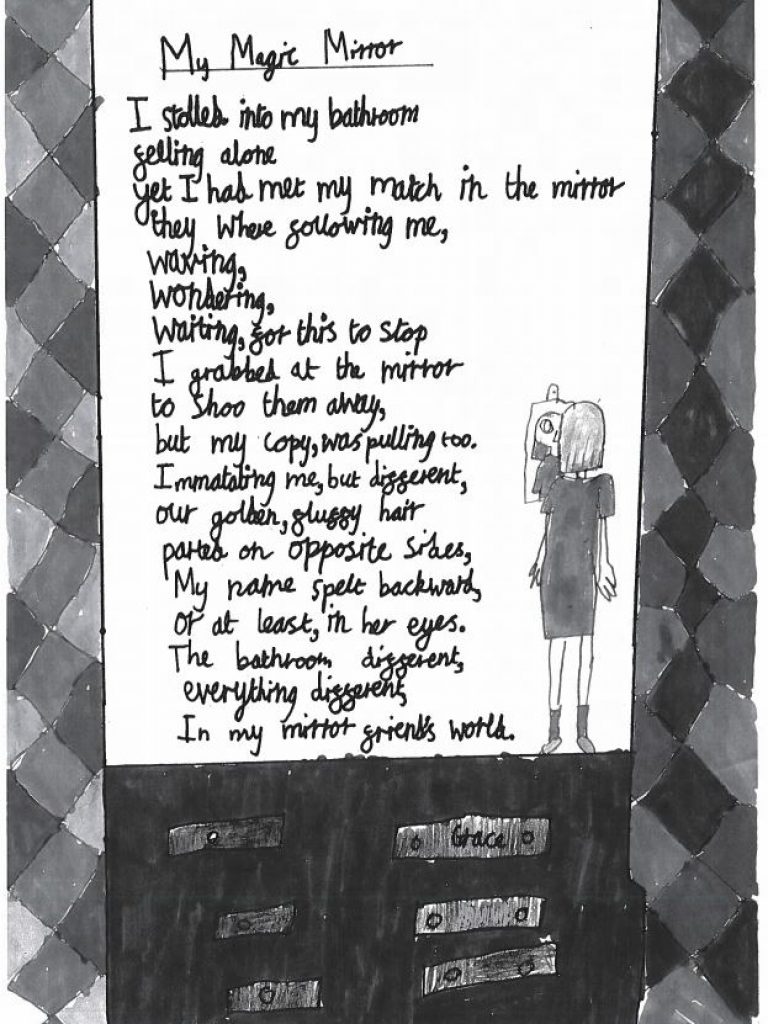 My Magic Mirror
I stolled into my bathroom
felling alone
yet I had met my match in the mirror
they where following me,
waving,
wondering,
waiting, for this to stop
I grabbed at the mirror
to shoo them away,
but my copy, was pulling too.
Immatating me, but different,
our golden, fluffy hair
parted on opposite sides,
My name spelt backward,
or at least, in her eyes.
The bathroom different,
everything different,
In my mirror friend's world.
Grace